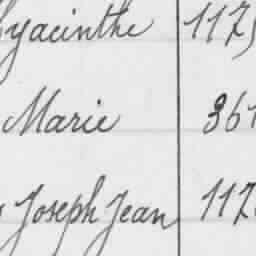 Hyacinthe 117
Marie 361
Joseph Jean 117